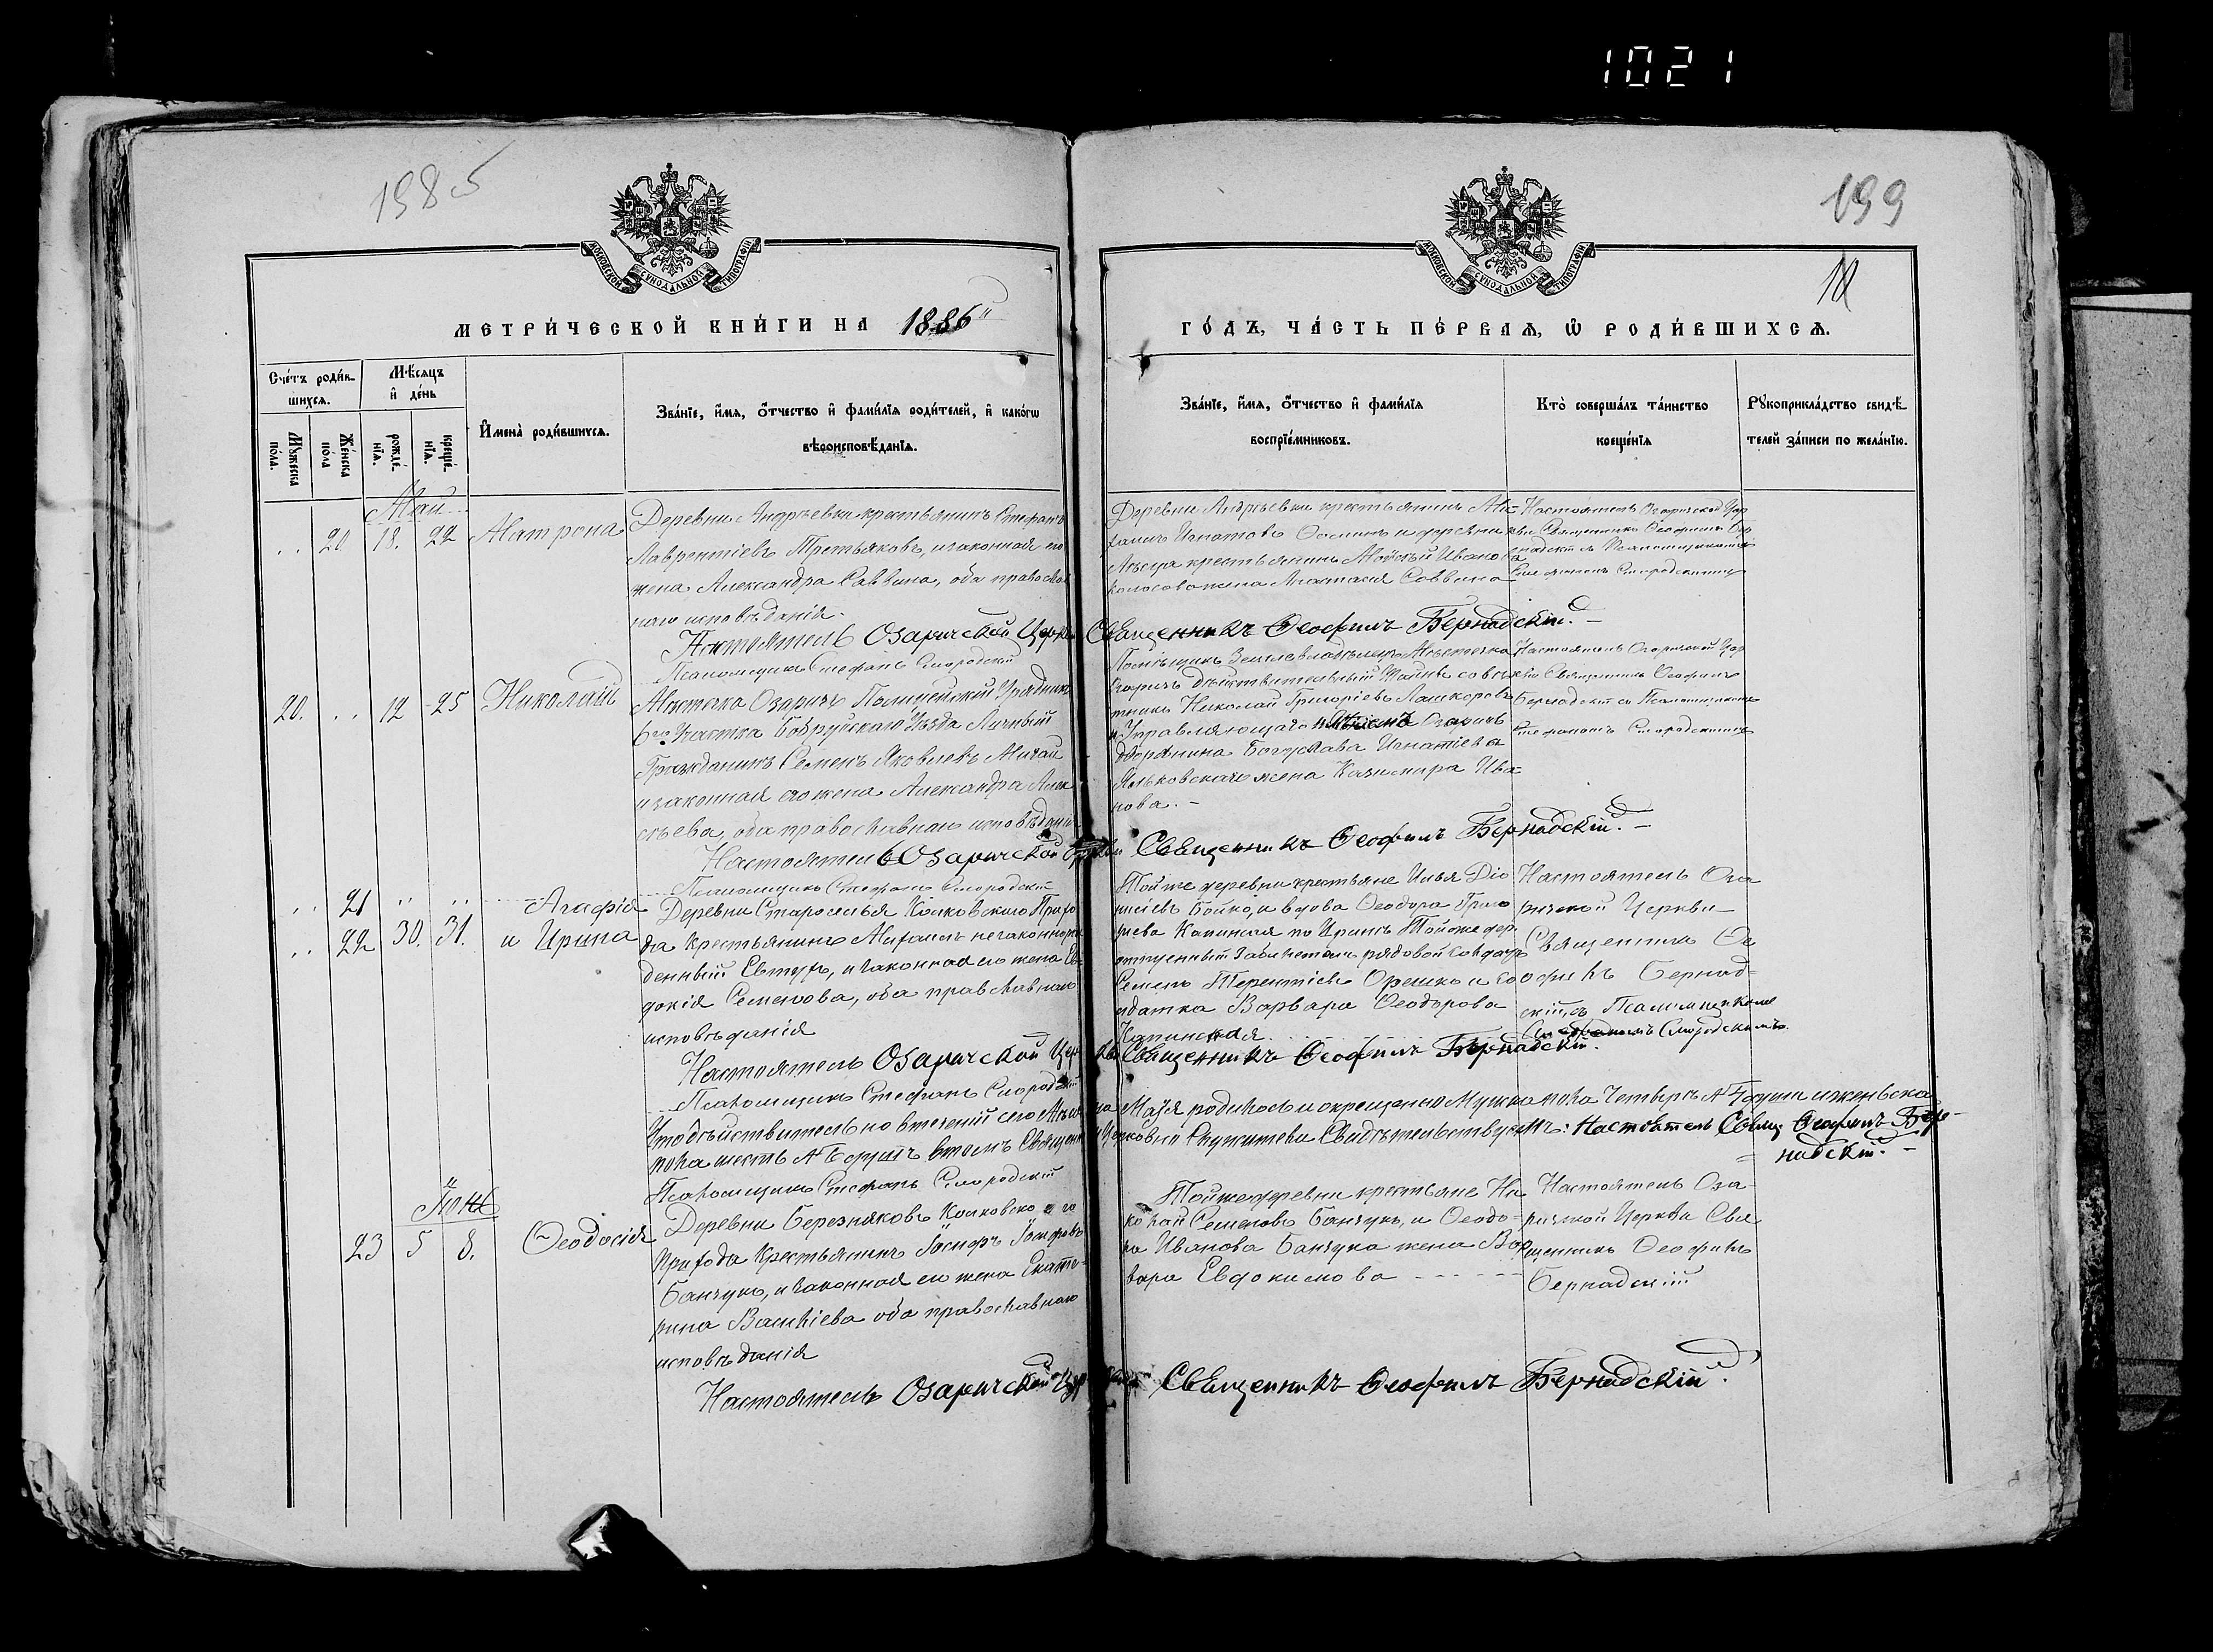 1021
1985
199
10
МОСКОВСКОЙ СѴНОДАЛЬНОЙ ТИПОГРАФІИ
МОСКОВСКОЙ СѴНОДАЛЬНОЙ ТИПОГРАФІИ
МЕТРИ́ЧЕСКОЙ КНИ́ГИ НА 1886й
ГО́ДЪ, ЧА́СТЬ ПЕ́РВАѦ, Ѡ РОДИ́ВШИХСѦ.
Сче́тъ роди́в-
шихсѧ.
Мѣ́сяцъ
и де́нь
Мꙋжеска
по́ла.
Же́нска
по́ла
рожде́-
нїѧ.
креще́-
нїѧ.
Имена̀ роди́вшихсѧ.
Зва́нїе, и́мѧ, о́тчество и фами́лїѧ роди́телей, и како́гѡ
вѣроисповѣ́данїѧ.
Зва́нїе, и́мѧ, о́тчество и фами́лїѧ
воспрїе́мниковъ.
Кто̀ соверша́лъ та́инство
креще́нїѧ
Рꙋкоприкла́дство свидѣ́-
телей за́писи по жела́нїю.
Май
20 18. 22 Матрона
Деревни Андрѣевки крестьянинъ Стефанъ
Лаврентіевъ Третьяковъ, и законная его
жена Александра Саввина, оба православ
наго исповѣданія.
Деревни Андрѣевки крестьянинъ
Игнатовъ и деревни
крестьянинъ Моѵсѣй Ивановъ
жена Анастасія Саввина
Настоятель Озаричской Цер
кви Священникъ Ѳеофилъ Бер
надскій съ Псаломщикомъ
Стефаномъ Смородскимъ
Настоятель Озаричской Церкви Священникъ Ѳеофилъ Бернадскій. –
Псаломщикъ Стефанъ Смородскій
20. 12 25 Николай
Мѣстечка Озаричъ Полицейскій Урядникъ
6го Участка Бобруйскаго Уѣзда Личный
Гражданинъ Семенъ Яковлевъ
и законная его жена Александра Алек
сѣева, оба православнаго исповѣданія
Помѣщикъ Землевладѣлецъ Мѣстечка
Озаричъ дѣйствительный Тайный совѣ
тникъ Николай Григорiевъ
и Управляющаго имѣніемъ Озаричъ
дворянина Богуслава Игнатіева
жена Казимира Ива
нова. –
Настоятель Озаричской Цер
кви Священникъ Ѳеофилъ
Бернадскій съ Псаломщикомъ
Стефаномъ Смородскимъ
Настоятель Озаричской Церкви Священникъ Ѳеофилъ Бернадскій. –
Псаломщикъ Стефанъ Смородскій
21 Агафія
22 30. 31. и Ирина
Деревни Староселья Колковскаго Прихо
да Крестьянинъ Михаилъ незаконнорож
денный Евтухъ, и законная его жена Ев
докія Семенова, оба православнаго
исповѣданія
Той же деревни крестьяне Илья Діо
нисіевъ Бойко, и вдова Ѳеодора Григо
рьева по Иринѣ Той же дер.
отпускный рядовой солдатъ
Семенъ Терентіевъ Орешко и со
лдатка Варвара Ѳеодорова
Настоятель Оза
ричской Церкви
Священникъ Ѳе
офилъ Бернад-
скій, съ Псаломщикомъ
Стефаномъ Смородскимъ.
Настоятель Озаричской Церкви Священникъ Ѳеофилъ Бернадскій.
Псаломщикъ Стефанъ Смородскій
Что дѣйствительно в теченіи сего Мѣсяца Мая родилось и окрещено Мужка пола Четыре № 4 души и женьска
пола шесть № 6 душъ в томъ Священно и Церковно Служители Свидѣтельствуемъ: Настоятель Свящ. Ѳеофилъ Бер-
надскій. –
Псаломщикъ Стефанъ Смородскій
Іюнь
23 5 8. Ѳеодосія
Деревни Березняковъ Колковскаго
Прихода Крестьянинъ Іосифъ Іосифовъ
Банчукъ, и законная его жена Екате-
рина Васильева оба православнаго
исповѣданія
Той же деревни крестьяне Ни
колай Семеновъ Банчукъ, и Ѳеодо-
ра Иванова Банчука жена Вар
вара Евдокимова
Настоятель Оза-
ричской Церкви Свя
щенникъ Ѳеофилъ
Бернадскій
Настоятель Озаричской Церкви Священникъ Ѳеофилъ Бернадскій.